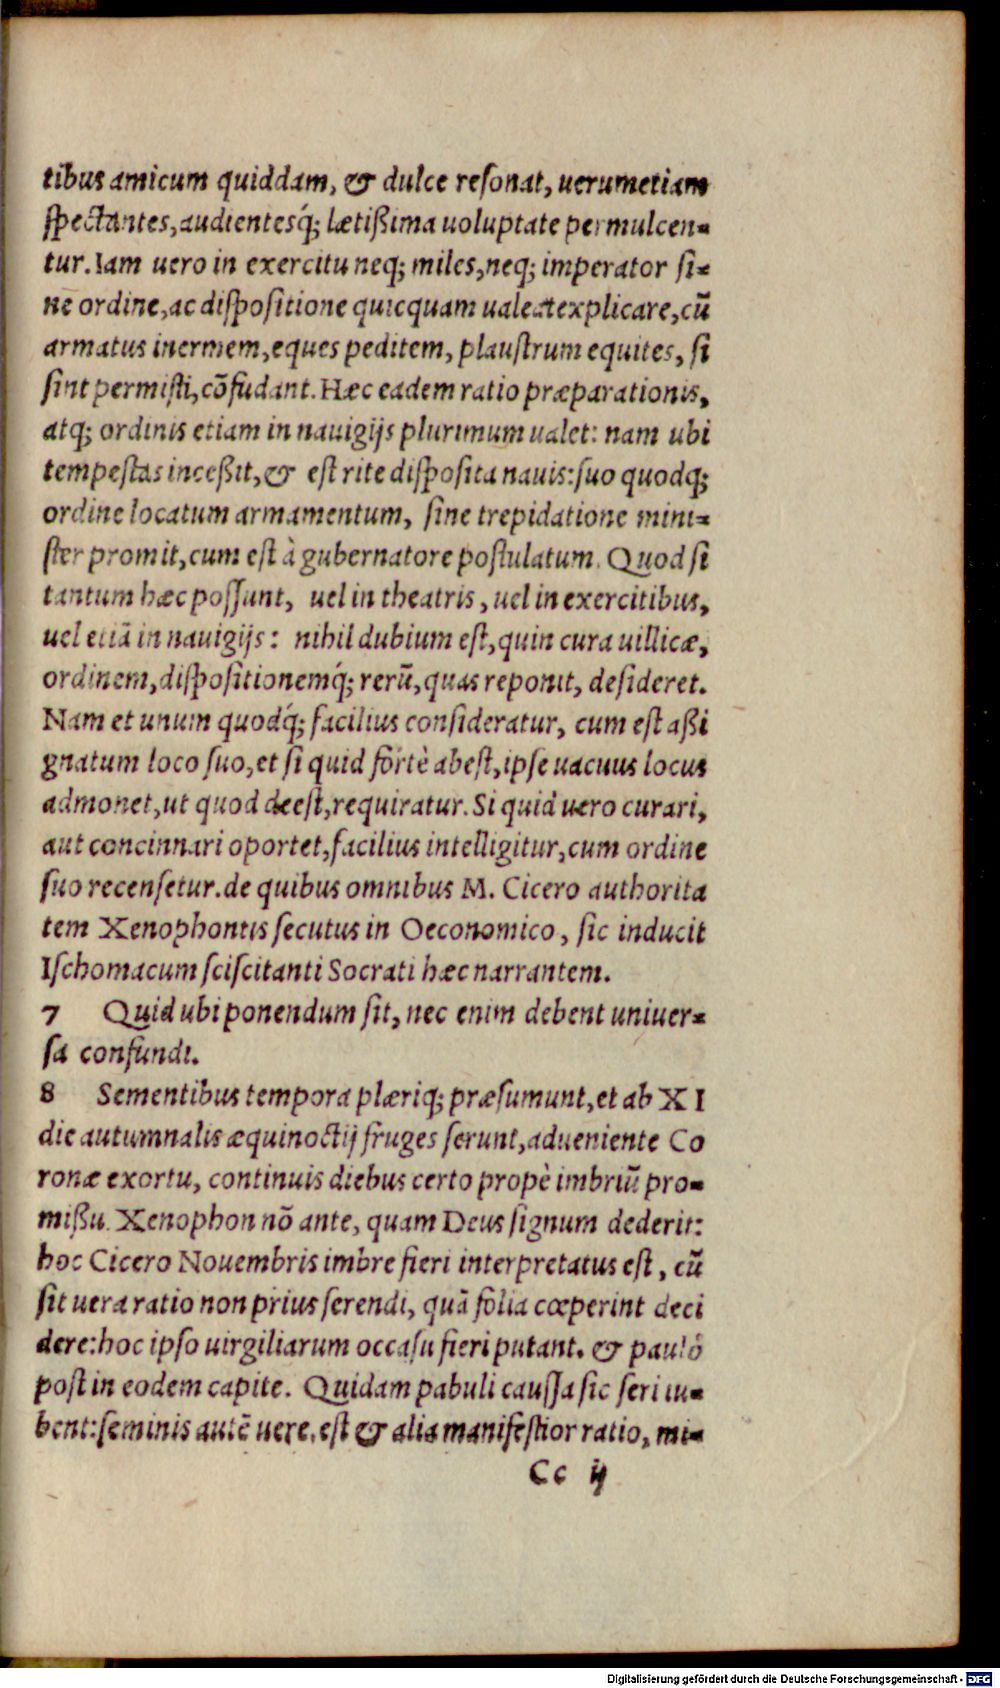 tibus amicum quiddam, & dulce resonat, uerumetiam
spectantes, audientesq́; lætißima uoluptate permulcen-
tur. Iam uero in exercitu neq; miles, neq; imperator si-
ne ordine, ac dispositione quicquam ualeat explicare, cū
armatus inermem, eques peditem, plaustrum equites, si
sint permisti, cōfudant. Hæc eadem ratio præparationis,
atq; ordinis etiam in nauigijs plurimum ualet: nam ubi
tempestas inceßit, & est rite disposita nauis: suo quodq;
ordine locatum armamentum, sine trepidatione mini-
ster promit, cum est à gubernatore postulatum. Quod si
tantum hæc possunt, uel in theatris, uel in exercitibus,
uel etiā in nauigijs: nihil dubium est, quin cura uillicæ,
ordinem, dispositionemq́; rerū, quas reponit, desideret.
Nam et unum quodq́; facilius consideratur, cum est aßi
gnatum loco suo, et si quid fortè abest, ipse uacuus locus
admonet, ut quod deest, requiratur. Si quid uero curari,
aut concinnari oportet, facilius intelligitur, cum ordine
suo recensetur. de quibus omnibus M. Cicero authorita
tem Xenophontis secutus in Oeconomico, sic inducit
Ischomacum sciscitanti Socrati hæc narrantem.
7 Quid ubi ponendum sit, nec enim debent uniuer-
sa confundi.
8 Sementibus tempora plæriq; præsumunt, et ab XI
die autumnalis æquinoctij fruges serunt, adueniente Co
ronæ exortu, continuis diebus certo propè imbriū pro-
mißu. Xenophon nō ante, quam Deus signum dederit:
hoc Cicero Nouembris imbre fieri interpretatus est, cū
sit uera ratio non prius serendi, quā folia cœperint deci
dere: hoc ipso uirgiliarum occasu fieri putant. & paulò
post in eodem capite. Quidam pabuli caussa sic seri iu-
bent: seminis autē uere. est & alia manifestior ratio, mi-
Cc ij
Digitalisierung gefördert durch die Deutsche Forschungsgemeinschaft - DFG